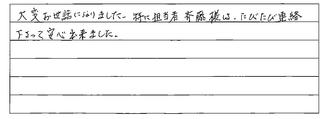 大変お世話になりました。特に担当者斉藤様は、たびたび連絡
下さって安心出来ました。